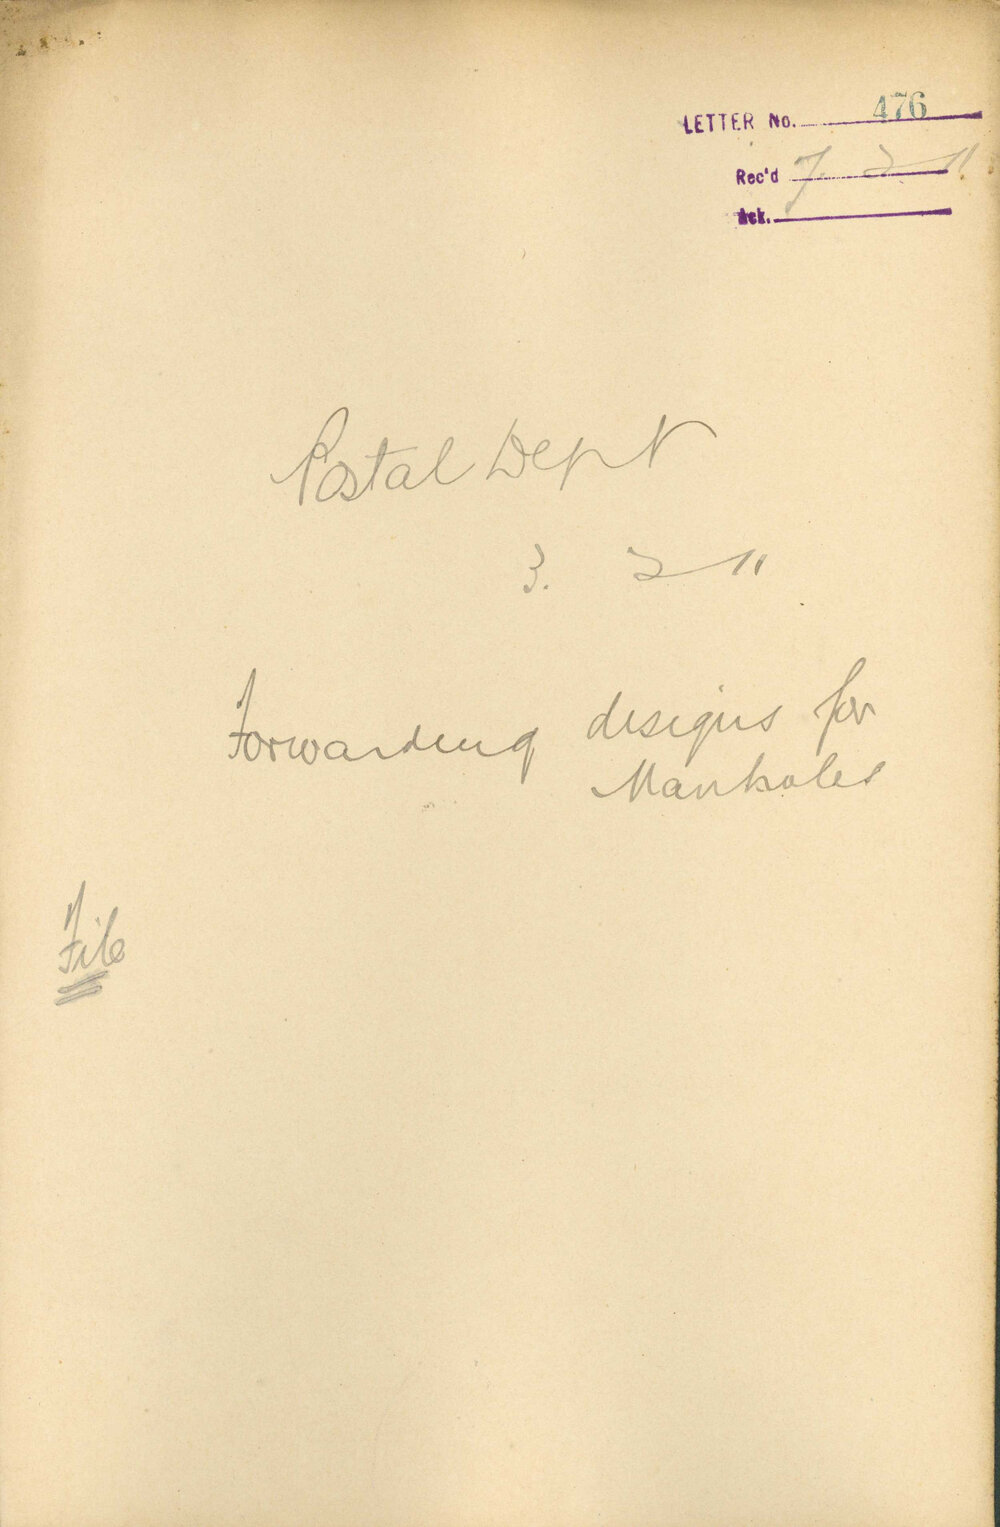 LETTER No. 476
Rec'd 7. 2 11
Ack.
Postal Dept
3. 2 11
Forwarding designs for
Manholes
File